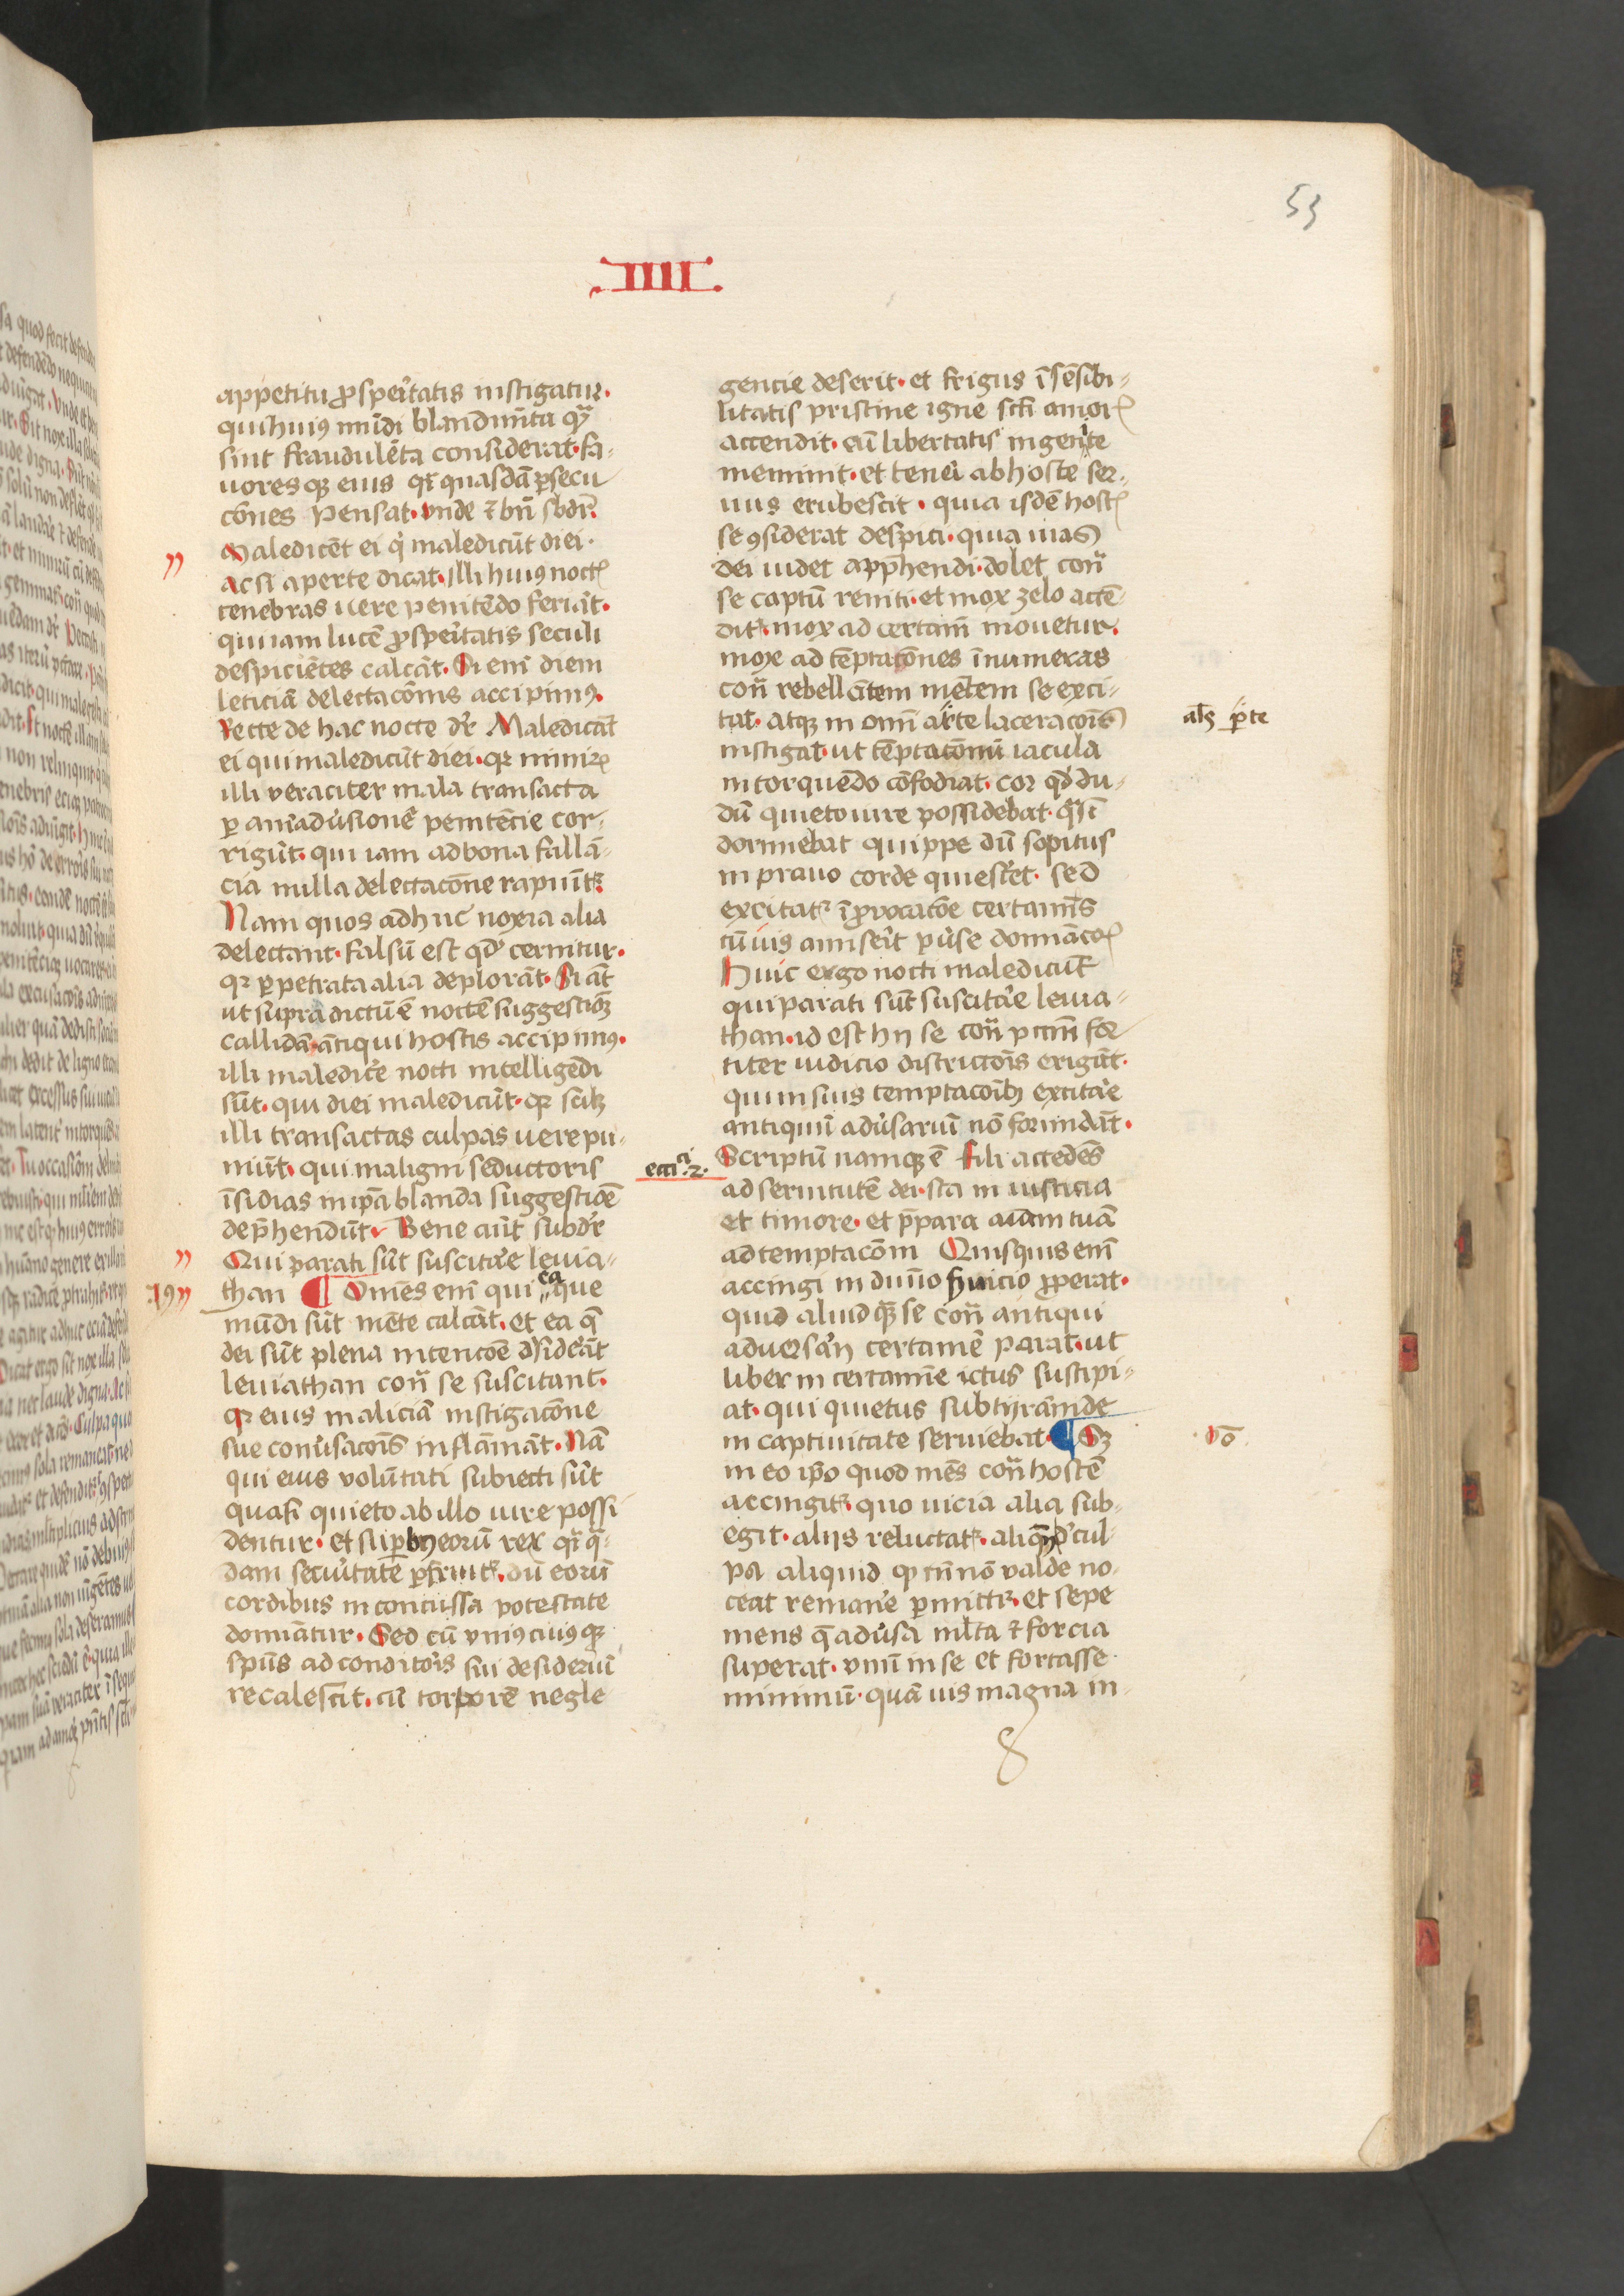 53
.IIII.
appetitu ꝓspeͥtatis instigatur.
qui huiꝰ mūdi blandimēta qͣꝫ
sint fraudulēta considerat. fa-
uores qꝫ eius qͣsi quasdā ꝑsecu
cōnes pensat. vnde ⁊ bn̄ sbdr̄.
Maledicēt ei qͥ maledicūt diei.
Ac si aperte dicat. illi huiꝰ noctꝭ
tenebras vere penitēdo feriāt.
qui iam lucē ꝓspeͥtatis seculi
despiciētes calcāt. Si em̄ diem
leticiā delectacōnis accipimꝰ.
recte de hac nocte dr̄ Maledicāt
ei qui maledicūt diei. qꝛ nimiꝝ
illi veraciter mala transacta
ꝑ aniaduͥsionē penitēcie cor-
rigūt. qui iam ad bona fallā-
cia nulla delectacōne rapiūtꝛ.
Nam quos adhuc noxia alia
delectant. falsū est qd̓ cernitur.
qꝛ ꝑpetrata alia deplorāt. Si aūt
ut supra dictū ē noctē suggestiōꝫ
callidā. ātiqui hostis accipimꝰ.
illi maledicͤe nocti intelligēdi
sūt. qui diei maledicūt. qꝛ scilꝫ
illi transactas culpas vere pu-
niūt. qui maligni seductoris
īsidias in ip̄a blanda suggestiōe
dep̄hendūt. Bene aūt subdr̄
Qui parati sūt suscitāe leuia-
19
than ¶ Omēs em̄ qui ea que
mūdi sūt mēte calcāt. et ea q̄
dei sūt plena intencōe dſideͣāt
leuiathan con̄ se suscitant.
qꝛ eius maliciā instigacōne
sue conuͥsacōis inflāmāt. Nā
qui eius volūtati subiecti sūt
quasi quieto ab illo iure possi
dentur. et suꝑbꝰ eorū rex qͣsi q̄-
dam secuͥtate ꝑfruitꝛ. dū eorū
cordibus inconcussa potestate
domiātur. Sed cū vniꝰcuiꝰqꝫ
spūs ad conditoͥis sui desideriū
recalescit. cū torporē negle
gencie deserit. et frigus īsēsibi-
litatis pristine igne scī amorꝭ
accendit. cū libertatis ingenite
meminit. et teneͥi ab hoste ser-
uus erubescit. quia isdē hostꝭ
se ꝯsiderat despici. quia uias
dei uidet app̄hendi. dolet con̄
se captū reniti. et mox zelo accē
ditꝛ. mox ad certamē mouetur.
mox ad tēptacōnes īnumeras
con̄ rebellātem mētem se exci-
tat. atqꝫ in omī arte laceracōis
als ꝑte
instigat. ut tēptacōnū iacula
intorquēdo cōfodiat. cor qd̓ du-
dū quieto iure possidebat. qͣsi
dormiebat quippe dū sopitus
in prauo corde quiesͨet. sed
excitatꝛ ī ꝓuocacōe certamīs
cū ius amiseͥit ꝑuͥse domiāciōꝭ
Huic ergo nocti maledicūt
qui parati sūt suscitāe leuia-
than. id est hij se con̄ pctm̄ for
titer iudicio districtōis erigūt.
qui in suis temptacoībꝫ excitāe
antiquū aduͥsariū nō formidāt.
eccͥci .2.
Scriptū namqꝫ ē fili accedēs
ad seruitutē dei. sta in iusticia
et timore. et p̄para aīam tuā
ad temptacōm Quisquis em̄
accingi in diuīo ẜuicio ꝓperat.
quid aliud qꝫ se con̄ antiqui
aduersaͥij certamē parat. ut
liber in certamīe ictus suscipi-
at. qui quietus sub tyrānide
in captiuitate seruiebat. ¶ Sꝫ
vo.
in eo ip̄o quod mēs con̄ hostē
accingitꝛ. quo vicia alia sub-
egit. aliis reluctatꝛ. aliqn̄ d̓ cul-
pa aliquid qd̓ tn̄ nō valde no-
ceat remanͤe ꝑmittitꝛ. et sepe
mens q̄ aduͥsa ml̄ta ⁊ forcia
superat. vnū in se et fortasse
minimū. quāuis magna in-